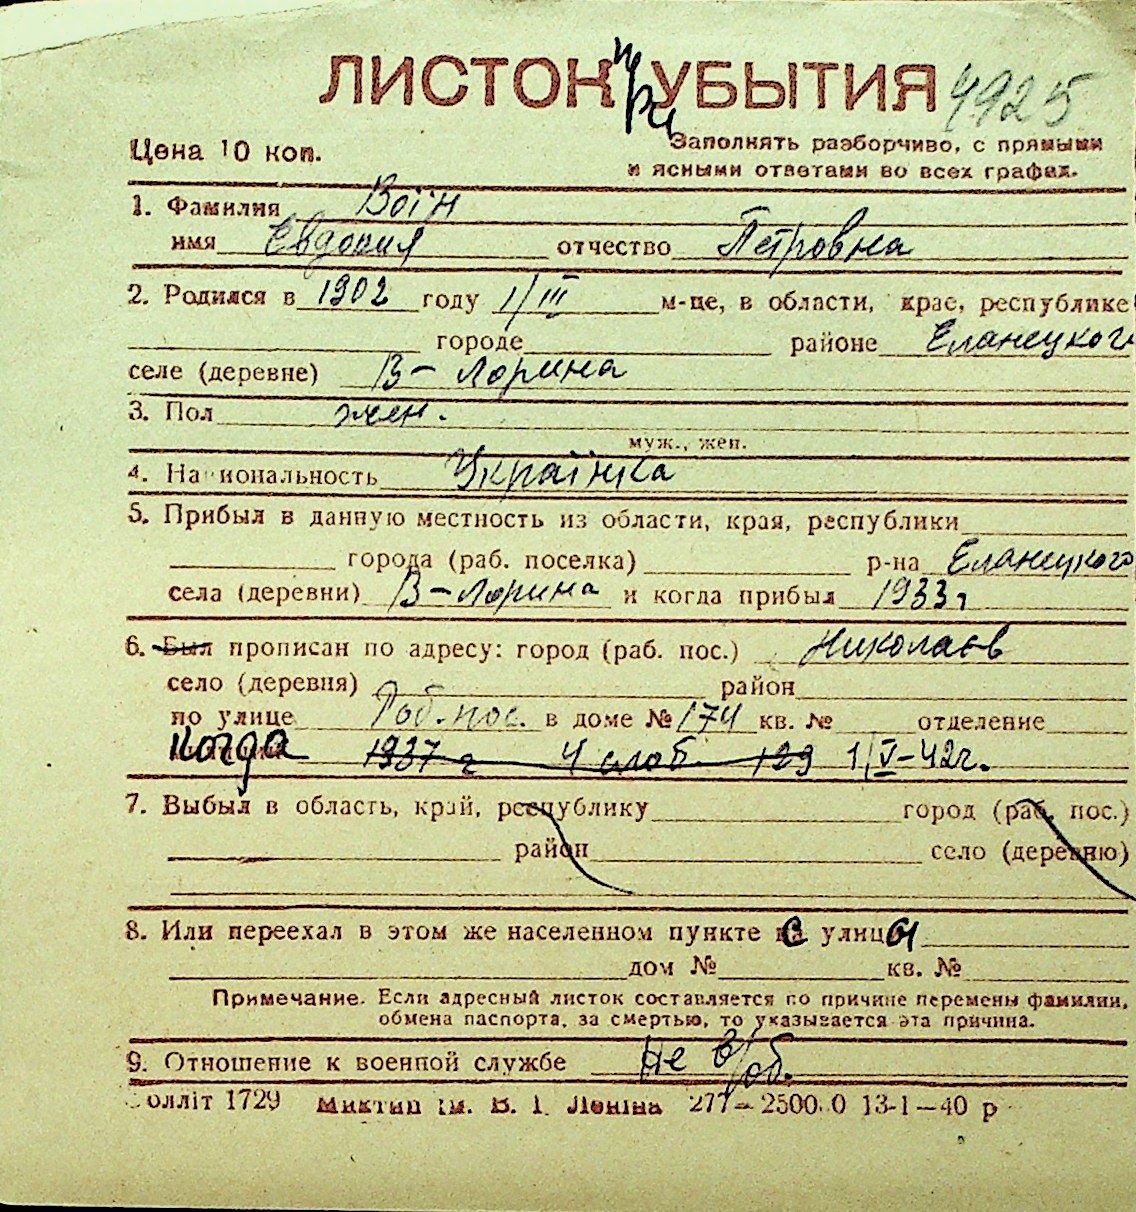 ЛИСТОК УБЫТИЯ при 4925
Цена 10 коп. Заполнять разборчиво, с прямыми
и ясными ответами во всех графах.
1. Фамилия Воїн
имя Евдокия отчество Петровна
2. Родился в 1902 году 1/III м-це, в области, крае, республике
городе районе Еланецкого
селе (деревне) В-Лорина
3. Пол жен.
муж., жен.
4. Национальность Українка
5. Прибыл в данную местность из области, края, республики
города (раб. поселка) р-на Еланецкого
села (деревни) В-Лорина и когда прибыл 1933 г
6. Был прописан по адресу: город (раб. пос.) Николаев
село (деревня) район
по улице Роб. пос. в доме № 174 кв. № отделение
когда 1937 г 4 слоб 129 1/V-42г.
7. Выбыл в область, край, республику город (раб. пос.)
район село (деревню)
8. Или переехал в этом же населенном пункте с улицы
дом № кв. №
Примечание. Если адресный листок составляется по причине перемены фамилии,
обмена паспорта, за смертью, то указывается эта причина.
9. Отношение к военной службе Не в/об.
олліт 1729 ім. В. І. Леніна 277—2500.0 13-1—40 р